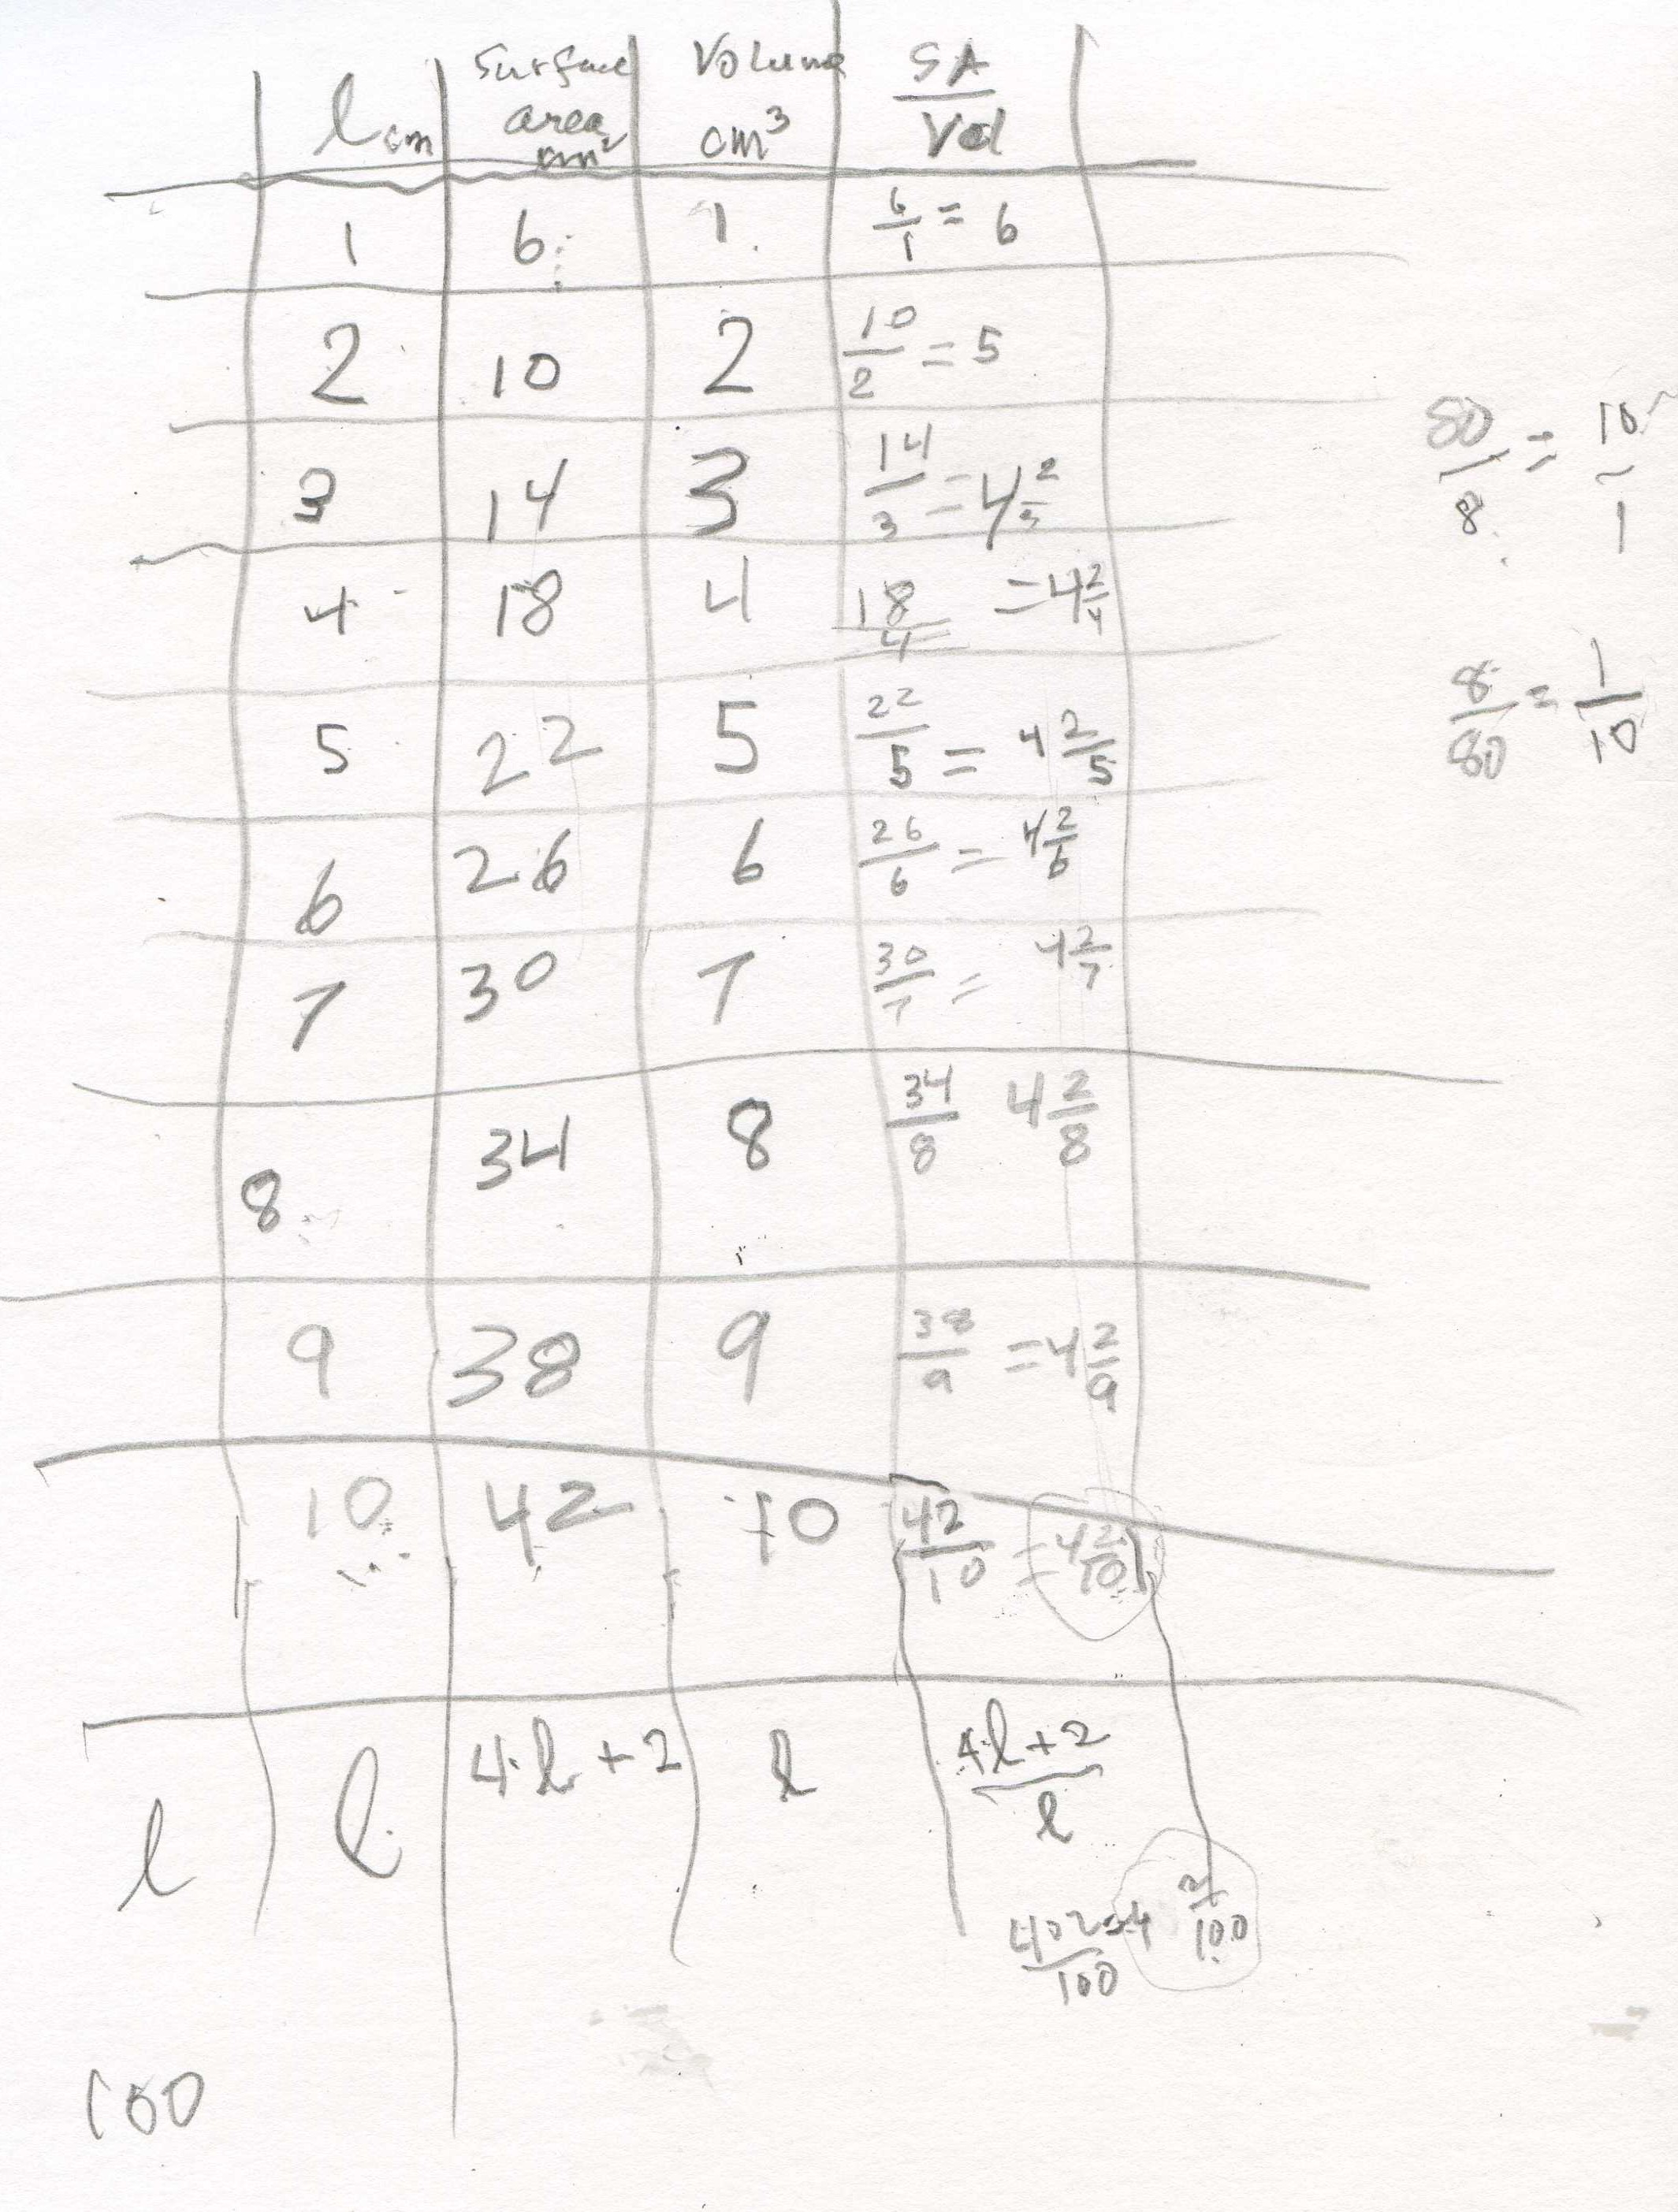 l cm | Surface area cm² | Volume cm³ | SA/Vol
1 | 6 | 1 | 6/1 = 6
2 | 10 | 2 | 10/2 = 5
3 | 14 | 3 | 14/3 = 4 2/3
4 | 18 | 4 | 18/4 = 4 2/4
5 | 22 | 5 | 22/5 = 4 2/5
6 | 26 | 6 | 26/6 = 4 2/6
7 | 30 | 7 | 30/7 = 4 2/7
8 | 34 | 8 | 34/8 4 2/8
9 | 38 | 9 | 38/9 = 4 2/9
10 | 42 | 10 | 42/10 = 4 2/10
l | l | 4·l + 2 | l | 4·l + 2/l
402/100 = 4 2/100
100
80/8 = 10/1
8/80 = 1/10